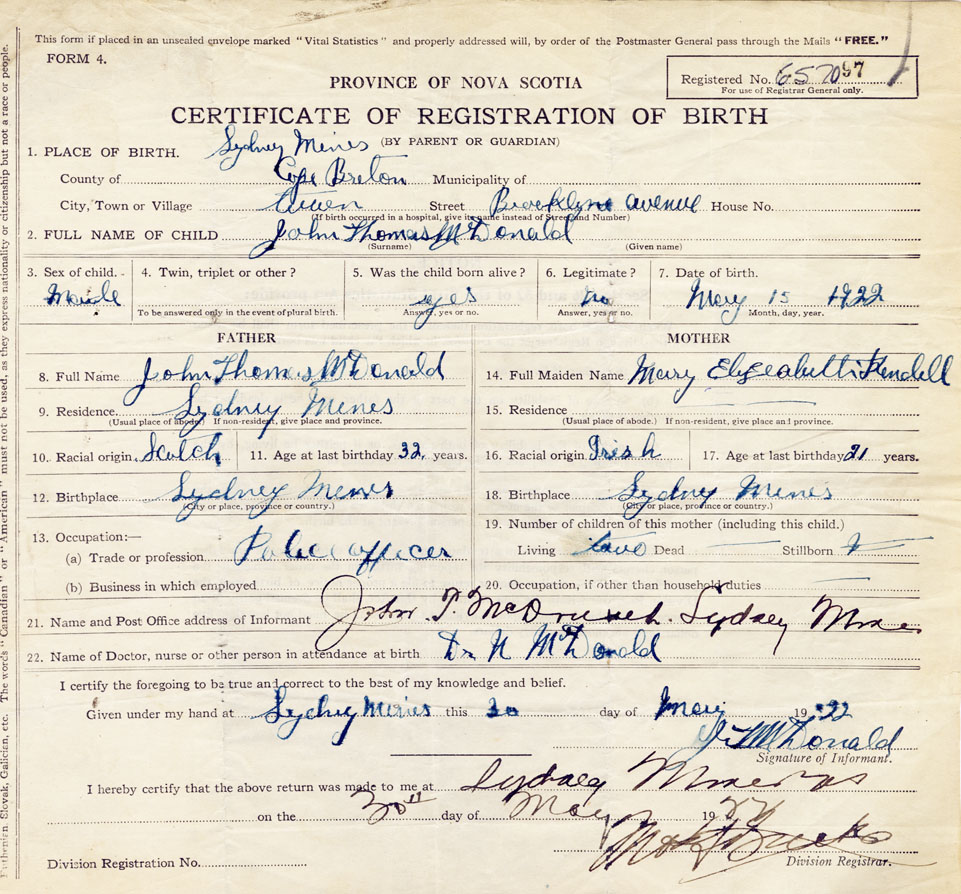 This form if placed in an unsealed envelope marked "Vital Statistics" and properly addressed will, by order of the Postmaster General pass through the Mails "FREE."
FORM 4.
PROVINCE OF NOVA SCOTIA
Registered No. 657097
For use of Registrar General only.
CERTIFICATE OF REGISTRATION OF BIRTH
(BY PARENT OR GUARDIAN)
1. PLACE OF BIRTH. Sydney Mines
County of Cape Breton Municipality of
City, Town or Village Street Brooklyne avenue House No.
(If birth occurred in a hospital, give its name instead of Street and Number)
2. FULL NAME OF CHILD John Thomas McDonald
(Surname) (Given name)
3. Sex of child. - 4. Twin, triplet or other? 5. Was the child born alive? 6. Legitimate? 7. Date of birth.
Maile yes no May 15 1922
To be answered only in the event of plural birth. Answer, yes or no. Answer, yes or no. Month, day, year.
FATHER MOTHER
8. Full Name John Thomas McDonald 14. Full Maiden Name Mary
9. Residence. Sydney Mines 15. Residence
(Usual place of abode.) If non-resident, give place and province. (Usual place of abode.) If non-resident, give place and province.
10. Racial origin. Scotch 11. Age at last birthday 32 years. 16. Racial origin Irish 17. Age at last birthday 21 years.
12. Birthplace Sydney Mines 18. Birthplace Sydney Mines
(City or place, province or country.) (City or place, province or country.)
13. Occupation:— 19. Number of children of this mother (including this child.)
(a) Trade or profession Police officer Living Dead Stillborn
(b) Business in which employed 20. Occupation, if other than household duties
21. Name and Post Office address of Informant John T. Sydney Mines
22. Name of Doctor, nurse or other person in attendance at birth Dr N McDonald
I certify the foregoing to be true and correct to the best of my knowledge and belief.
Given under my hand at Sydney Mines this 30 day of May 1922
J. T. McDonald
Signature of Informant.
I hereby certify that the above return was made to me at Sydney Mines
on the 30th day of May 19
Division Registrar.
Division Registration No.
Ruthenian, Slovak, Galician, etc. The words "Canadian" or "American" must not be used, as they express nationality or citizenship but not a race or people.